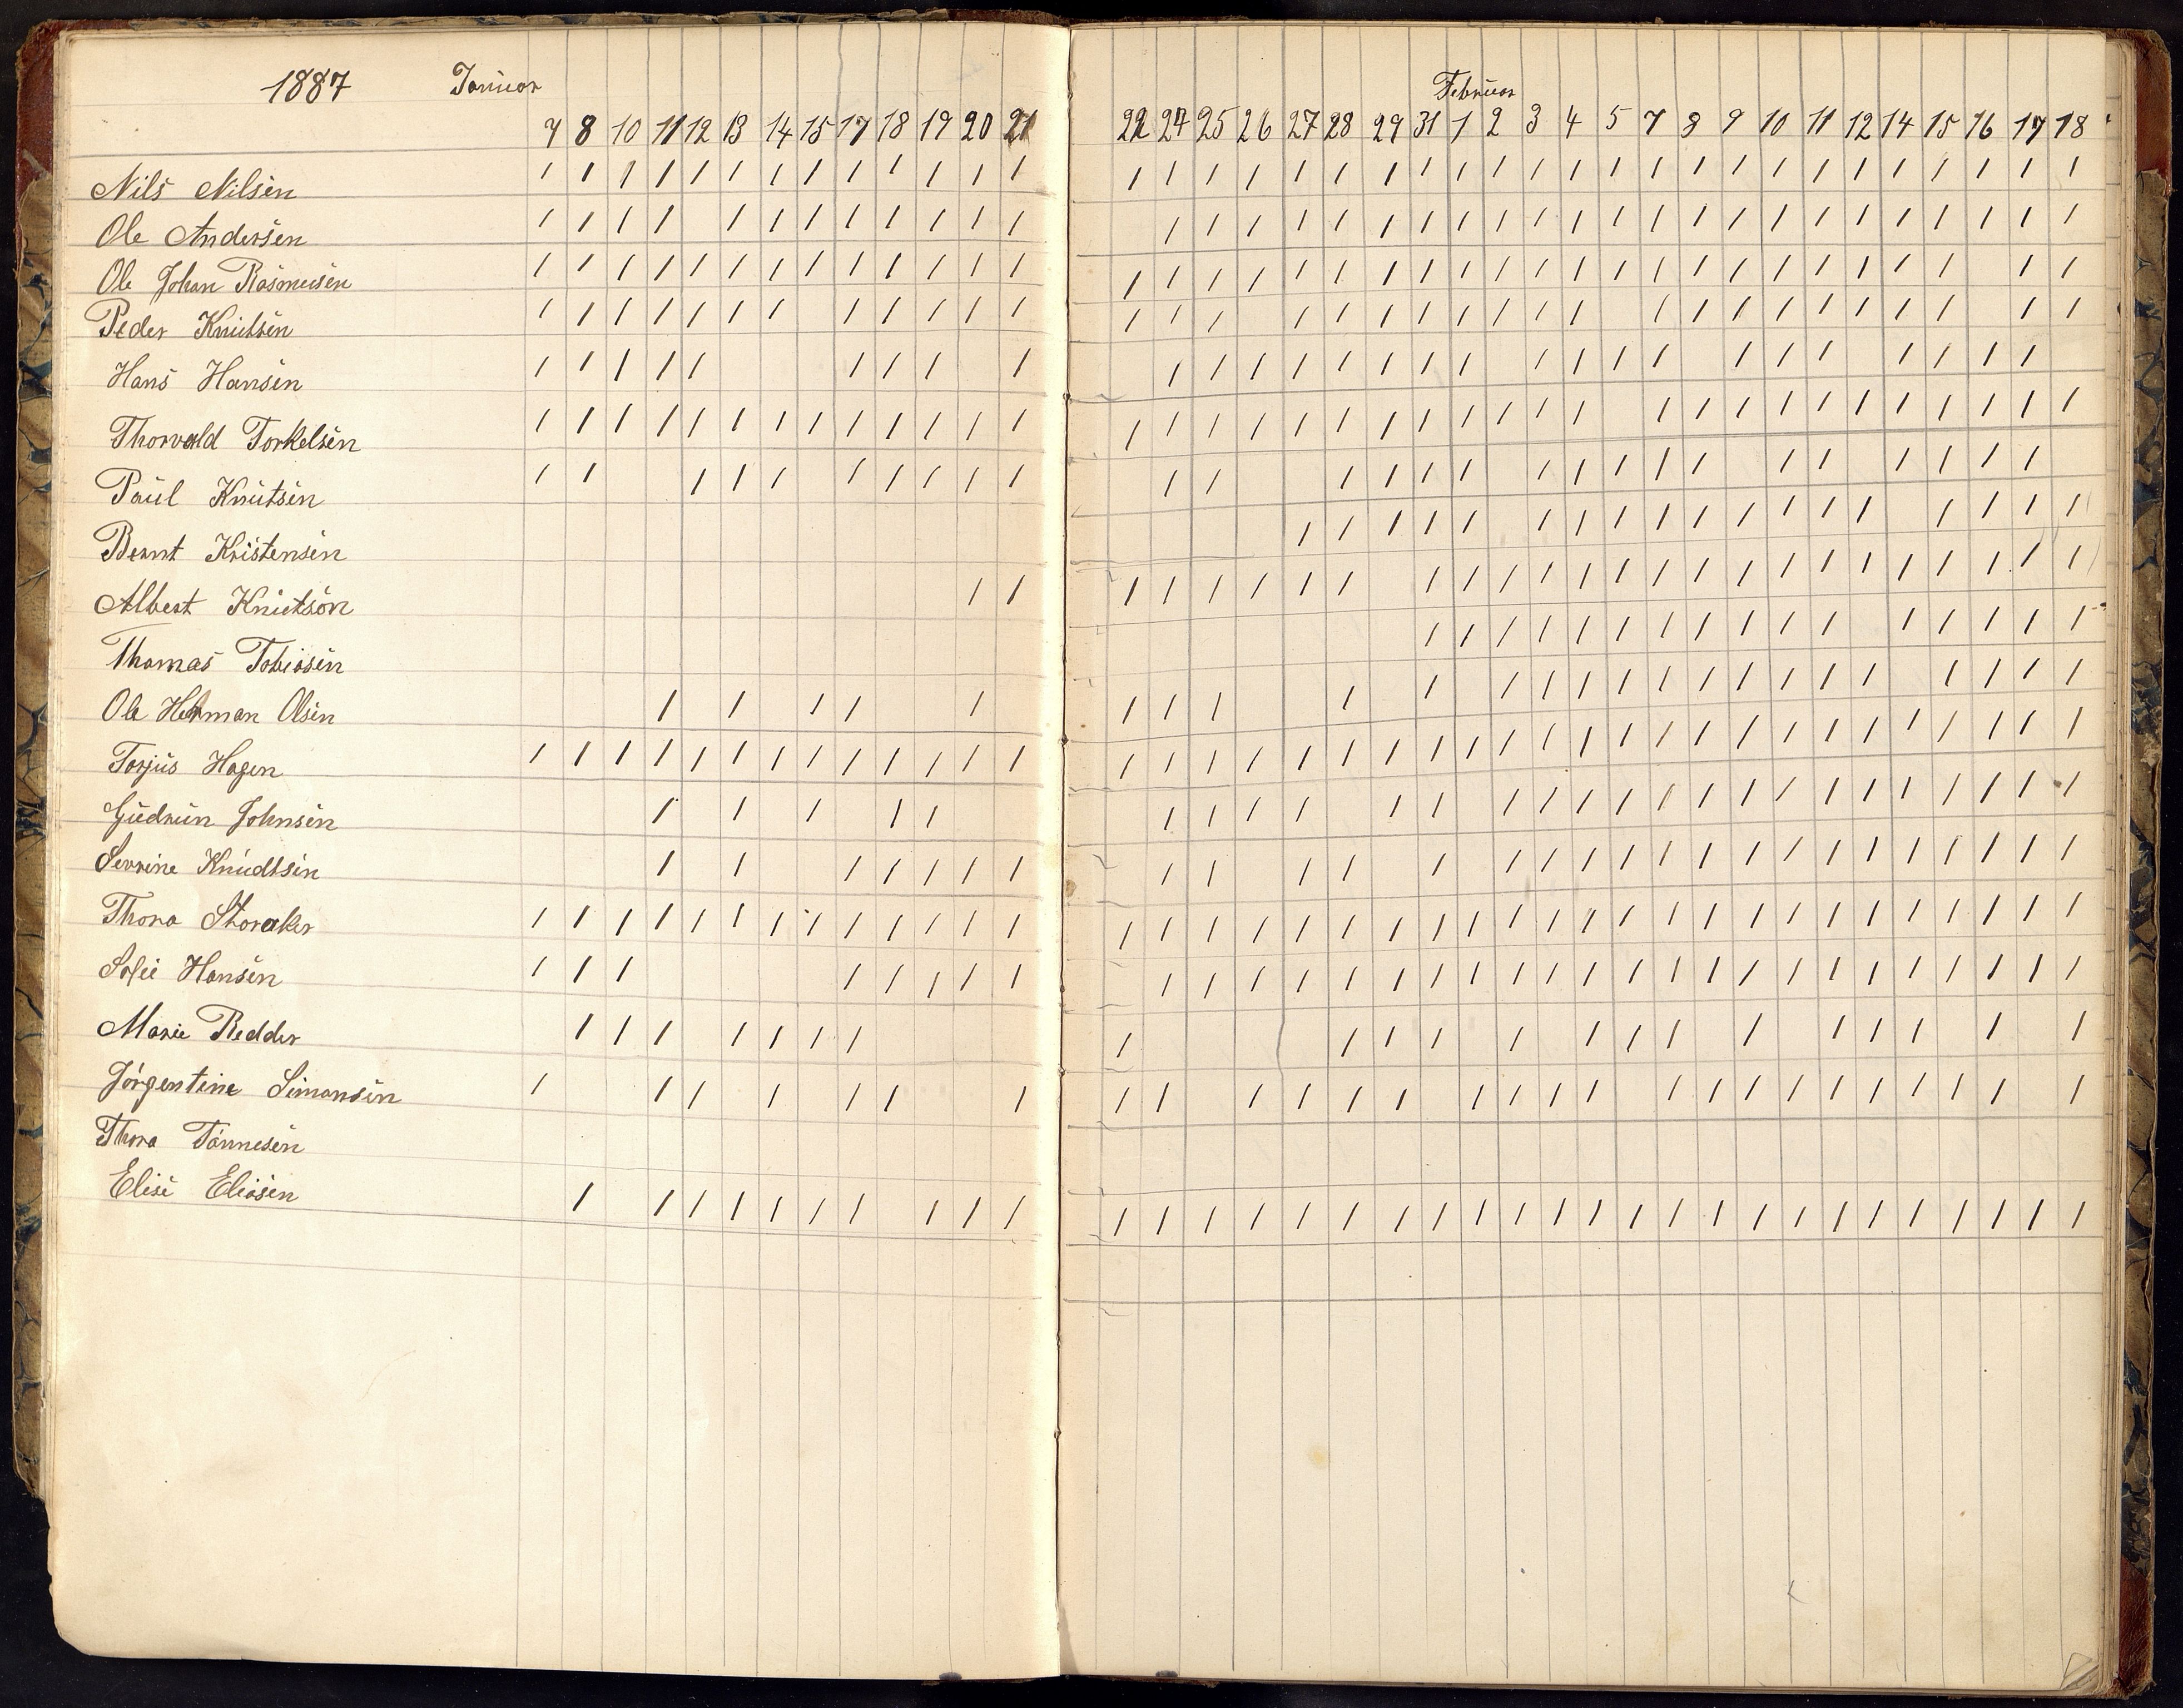 1887 Januar
7 8 10 11 12 13 14 15 17 18 19 20 21
Februar
22 24 25 26 27 28 29 31 1 2 3 4 5 7 8 9 10 11 12 14 15 16 17 18
Nils Nilsen
Ole Andersen
Ole Johan Rasmusen
Peder Knutsen
Hans Hansen
Thorvald Torkelsen
Paul Knutsen
Bernt Kristensen
Albert Knutson
Thomas Tobiasen
Ole Herman Olsen
Torjus Hagen
Gudrun Johnsen
Serine Knudtsen
Thora Storaker
Sofie Hansen
Marie Redder
Jørgentine Simonsen
Thora Tønnesen
Elise Eliasen